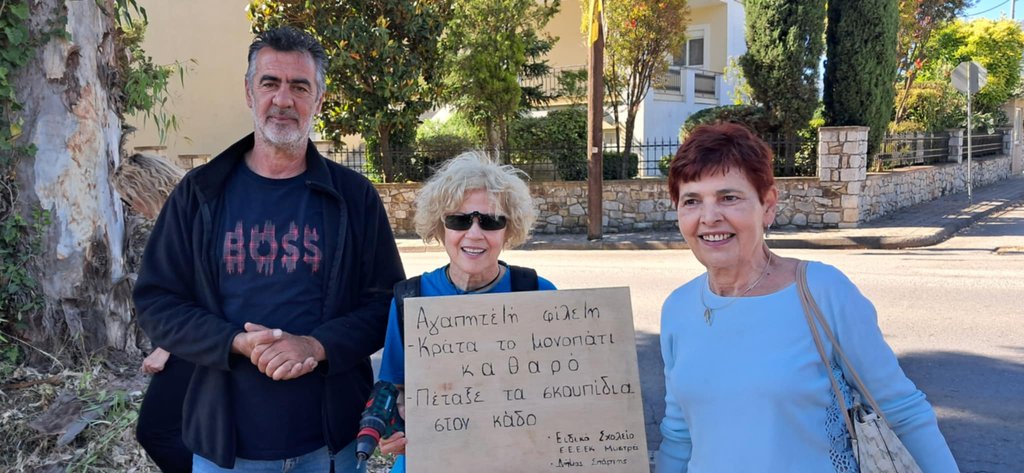 BOSS
Αγαπητέ/ή φίλε/η
- Κράτα το μονοπάτι
καθαρό
- Πέταξε τα σκουπίδια
στον κάδο
· Ειδικό Σχολείο
Ε.Ε.Ε.ΕΚ Μυστρά
· Δήμος Σπάρτης